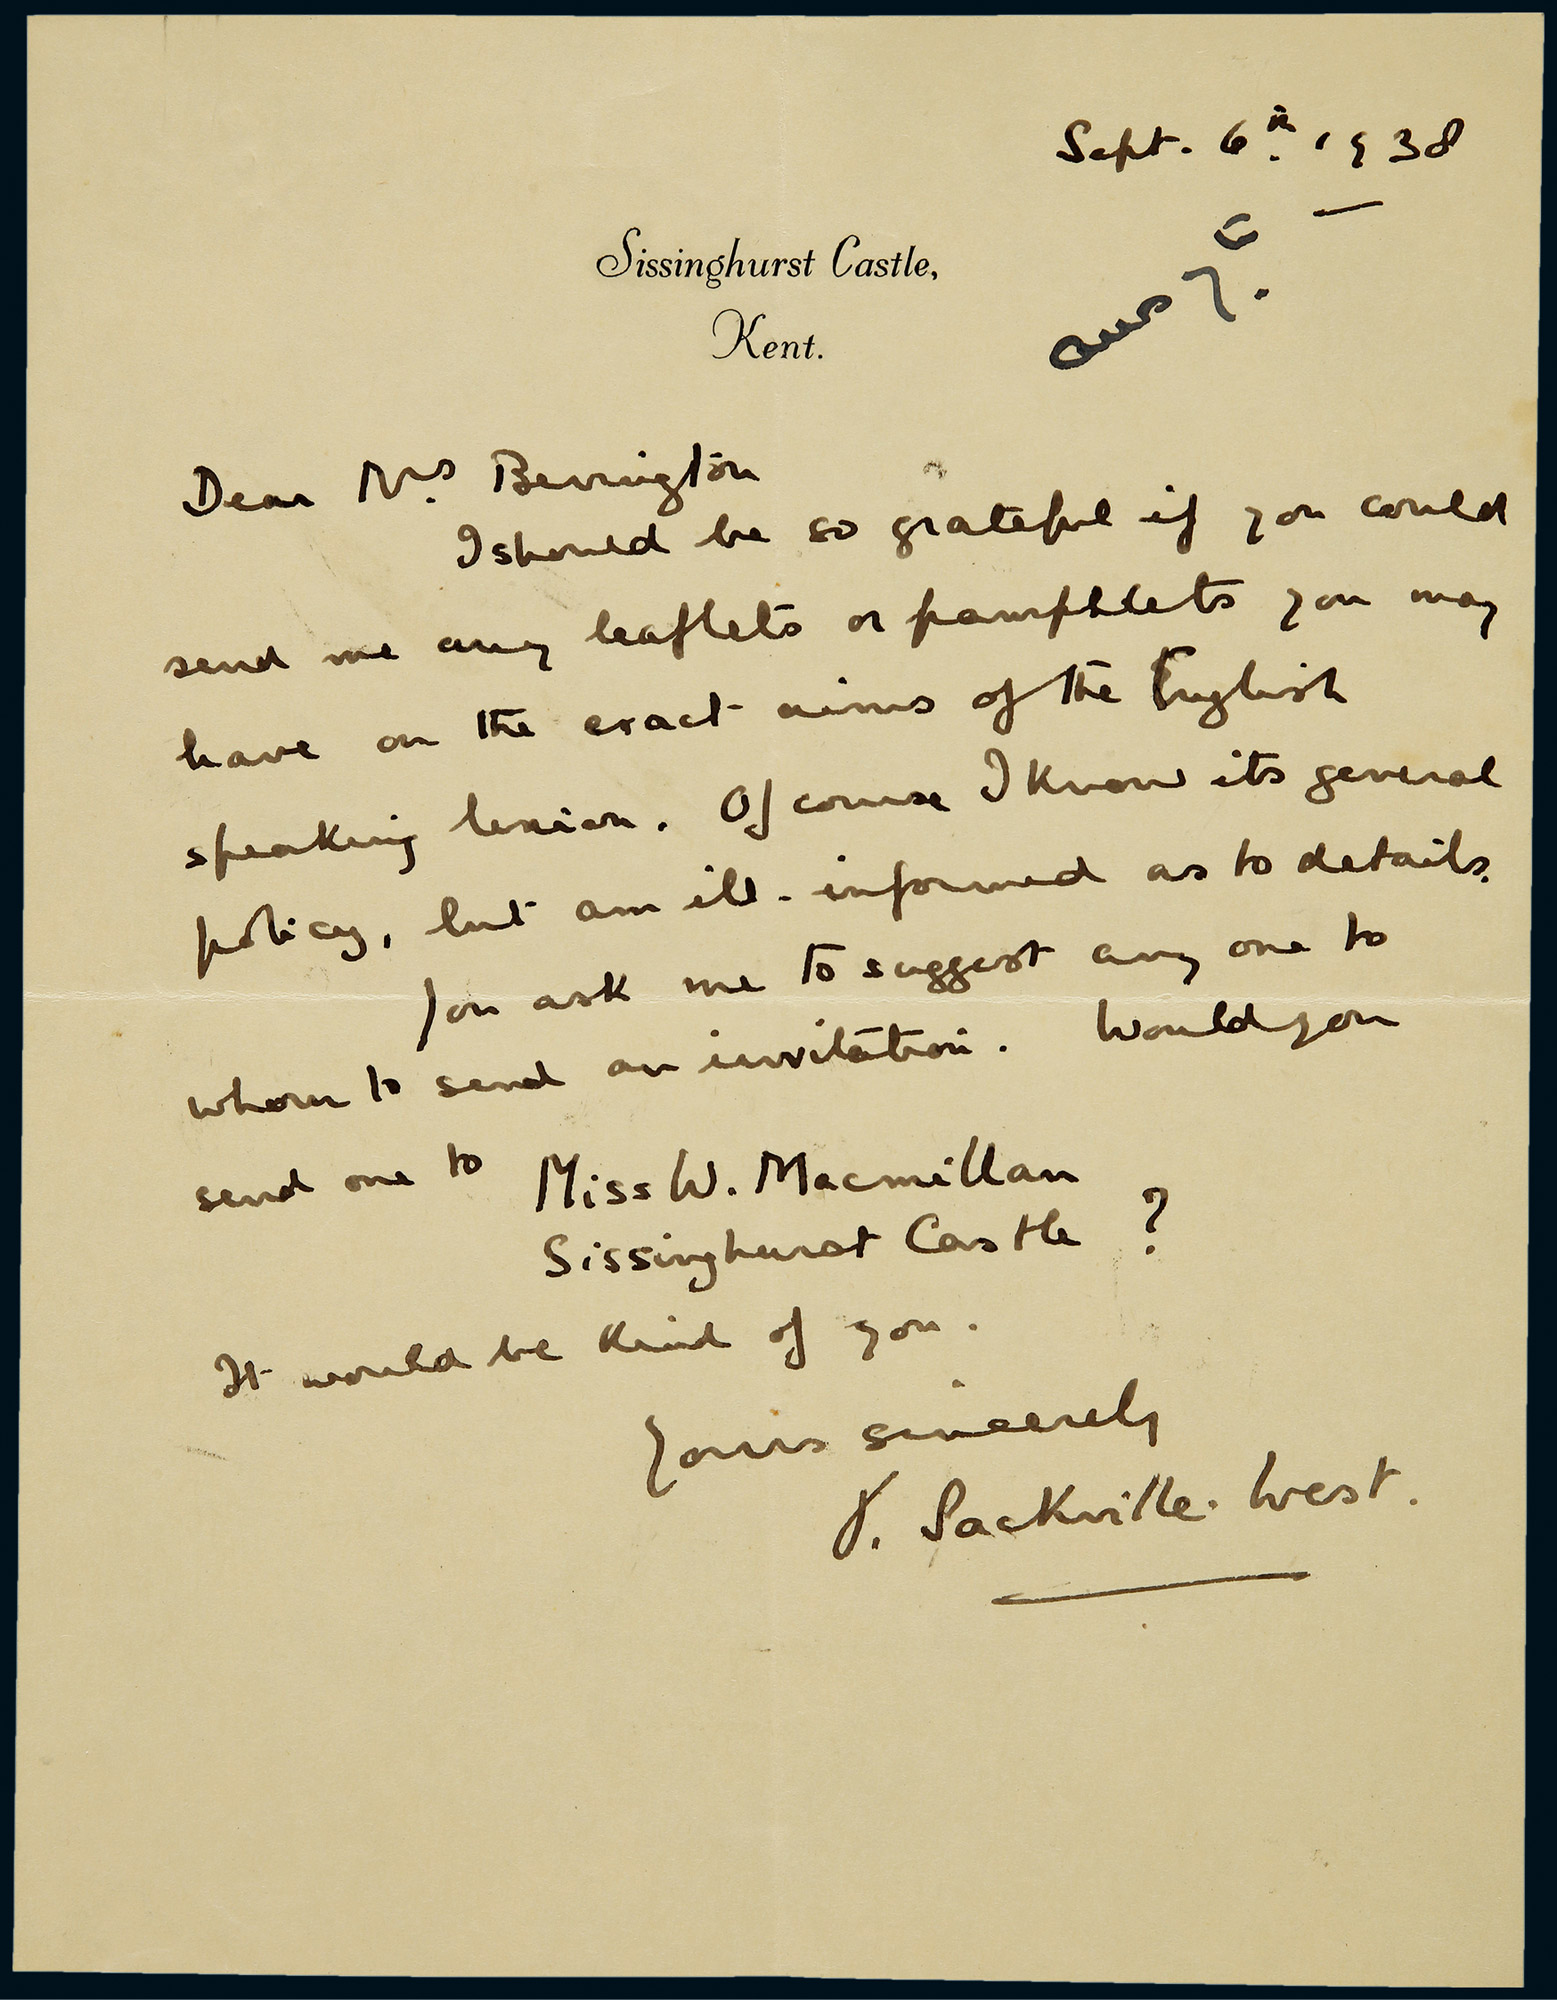 Sept. 6th. 1938
Sissinghurst Castle,
Kent.
Dear Mrs. Berrington
I should be so grateful if you could
send me any leaflets or pamphlets you may
have on the exact aims of the English
speaking Union. Of course I know its general
policy, but am ill-informed as to details.
You ask me to suggest any one to
whom to send an invitation. Would you
send one to Miss W. Macmillan
Sissinghurst Castle ?
It would be kind of you.
Yours sincerely
V. Sackville-West.